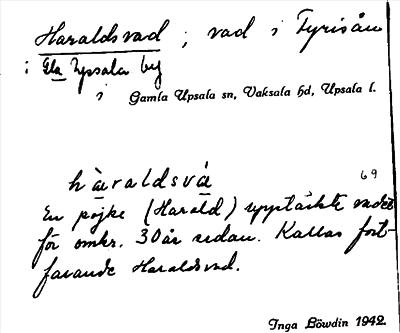 Haraldsvad ; vad i Fyrisån
i Gla Upsala by
i Gamla Upsala sn, Vaksala hd, Upsala l.
håraldsvá 69
En pojke (Harald) upptäckte vadet
för omkr. 30 år sedan. Kallas fort-
farande Haraldsvad.
Inga Löwdin 1942.